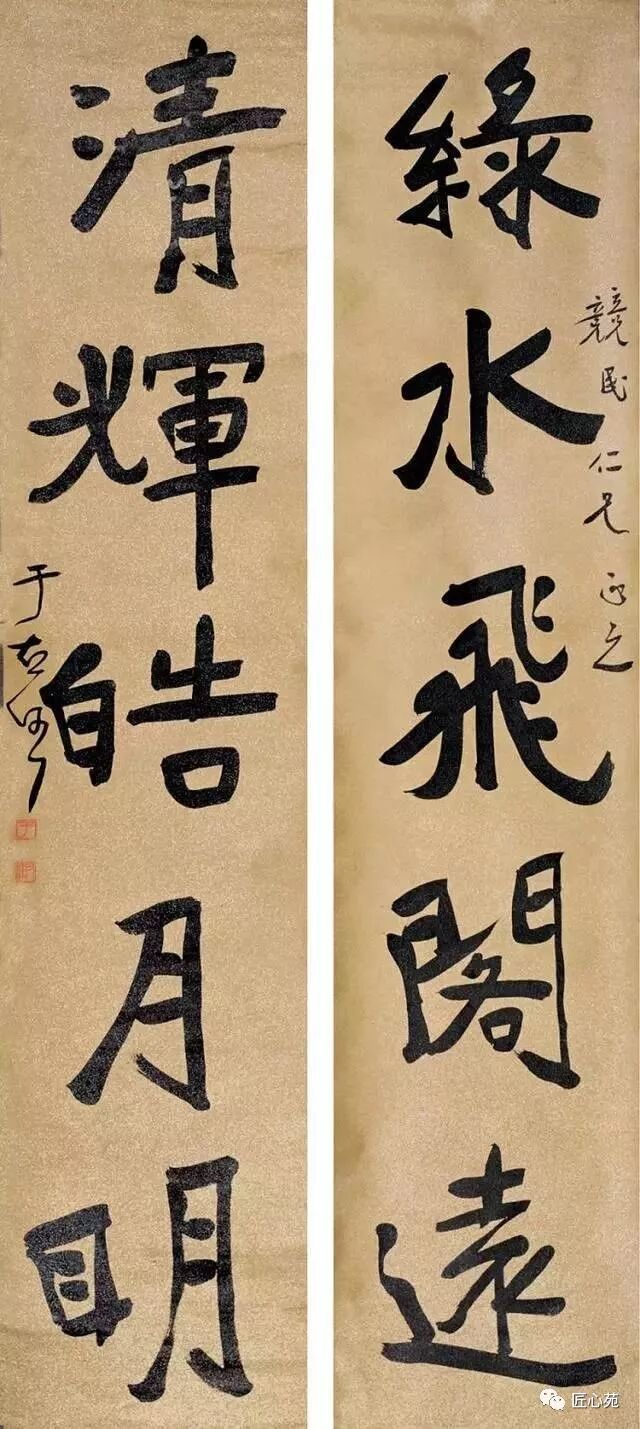 綠水飛閣遠
競民仁兄正之
清輝皓月明
于右任
匠心苑